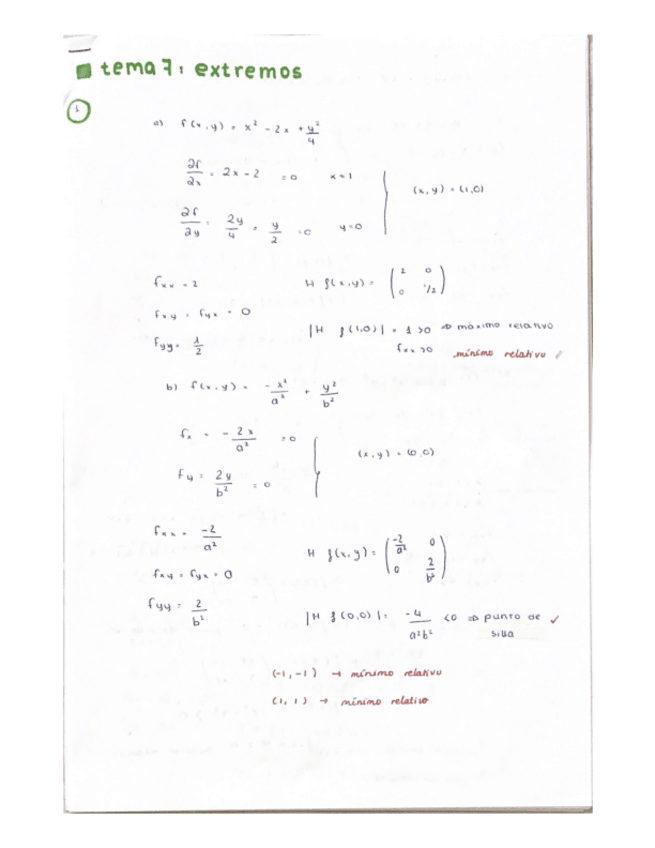 tema 7: extremos
1
a) f(x,y) = x² - 2x + y²/4
∂f/∂x = 2x - 2 = 0 x = 1
(x,y) = (1,0)
∂f/∂y = 2y/4 = y/2 = 0 y = 0
fxx = 2
H f(x,y) = ( 2 0 ; 0 1/2 )
fxy = fyx = 0
|H f(1,0)| = 1 > 0 ⇒ máximo relativo
fyy = 1/2
fxx > 0 mínimo relativo
b) f(x,y) = - x²/a² + y²/b²
fx = - 2x/a² = 0
(x,y) = (0,0)
fy = 2y/b² = 0
fxx = -2/a²
H f(x,y) = ( -2/a² 0 ; 0 2/b² )
fxy = fyx = 0
fyy = 2/b²
|H f(0,0)| = -4/a²b² < 0 ⇒ punto de silla ✓
(-1,-1) → mínimo relativo
(1, 1) → mínimo relativo